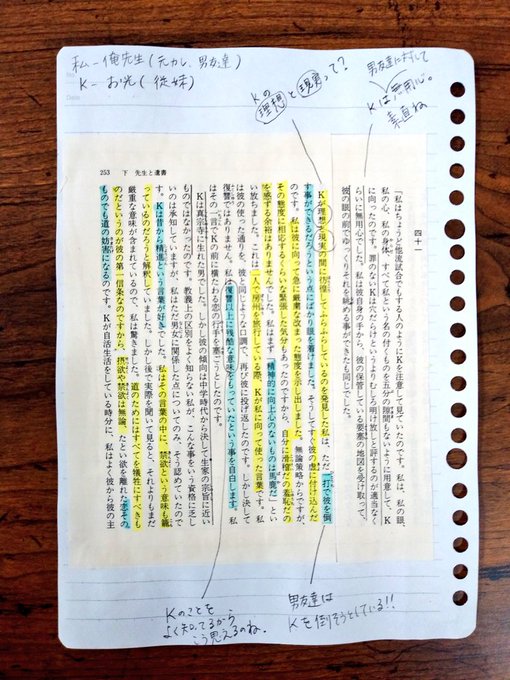 私ー俺先生(元カレ、男友達)
Kーお光(従妹)
男友達に対して
Kは無用心。
素直ね
Kの
理想と現実って?
四十一
「私はちょうど他流試合でもする人のようにKを注意して見ていたのです。私は、私の眼、
私の心、私の身体、すべて私という名の付くものを五分の隙間もないように用意して、K
に向ったのです。罪のないKは穴だらけというよりむしろ明け放しと評するのが適当なく
らいに無用心でした。私は彼自身の手から、彼の保管している要塞の地図を受け取って、
彼の眼の前でゆっくりそれを眺める事ができたも同じでした。
Kが理想と現実の間に彷徨してふらふらしているのを発見した私は、ただ一打で彼を倒
す事ができるだろうという点にばかり眼を着けました。そうしてすぐ彼の虚に付け込んだ
のです。私は彼に向って急に厳粛な改まった態度を示し出しました。無論策略からですが、
その態度に相応するくらいな緊張した気分もあったのですから、自分に滑稽だの羞恥だの
を感ずる余裕はありませんでした。私はまず「精神的に向上心のないものは馬鹿だ」とい
い放ちました。これは二人で房州を旅行している際、Kが私に向って使った言葉です。私
は彼の使った通りを、彼と同じような口調で、再び彼に投げ返したのです。しかし決して
復讐ではありません。私は復讐以上に残酷な意味をもっていたという事を自白します。私
はその一言でKの前に横たわる恋の行手を塞ごうとしたのです。
Kは真宗寺に生れた男でした。しかし彼の傾向は中学時代から決して生家の宗旨に近い
ものではなかったのです。教義上の区別をよく知らない私が、こんな事をいう資格に乏し
いのは承知していますが、私はただ男女に関係した点についてのみ、そう認めていたので
す。Kは昔から精進という言葉が好きでした。私はその言葉の中に、禁欲という意味も籠
っているのだろうと解釈していました。しかし後で実際を聞いて見ると、それよりもまだ
厳重な意味が含まれているので、私は驚きました。道のためにはすべてを犠牲にすべきも
のだというのが彼の第一信条なのですから、摂欲や禁欲は無論、たとい欲を離れた恋その
ものでも道の妨害になるのです。Kが自活生活をしている時分に、私はよく彼から彼の主
253 下 先生と遺書
男友達は
Kを倒そうとしている!!
Kのことを
よく知ってるから
こう思えるのね。